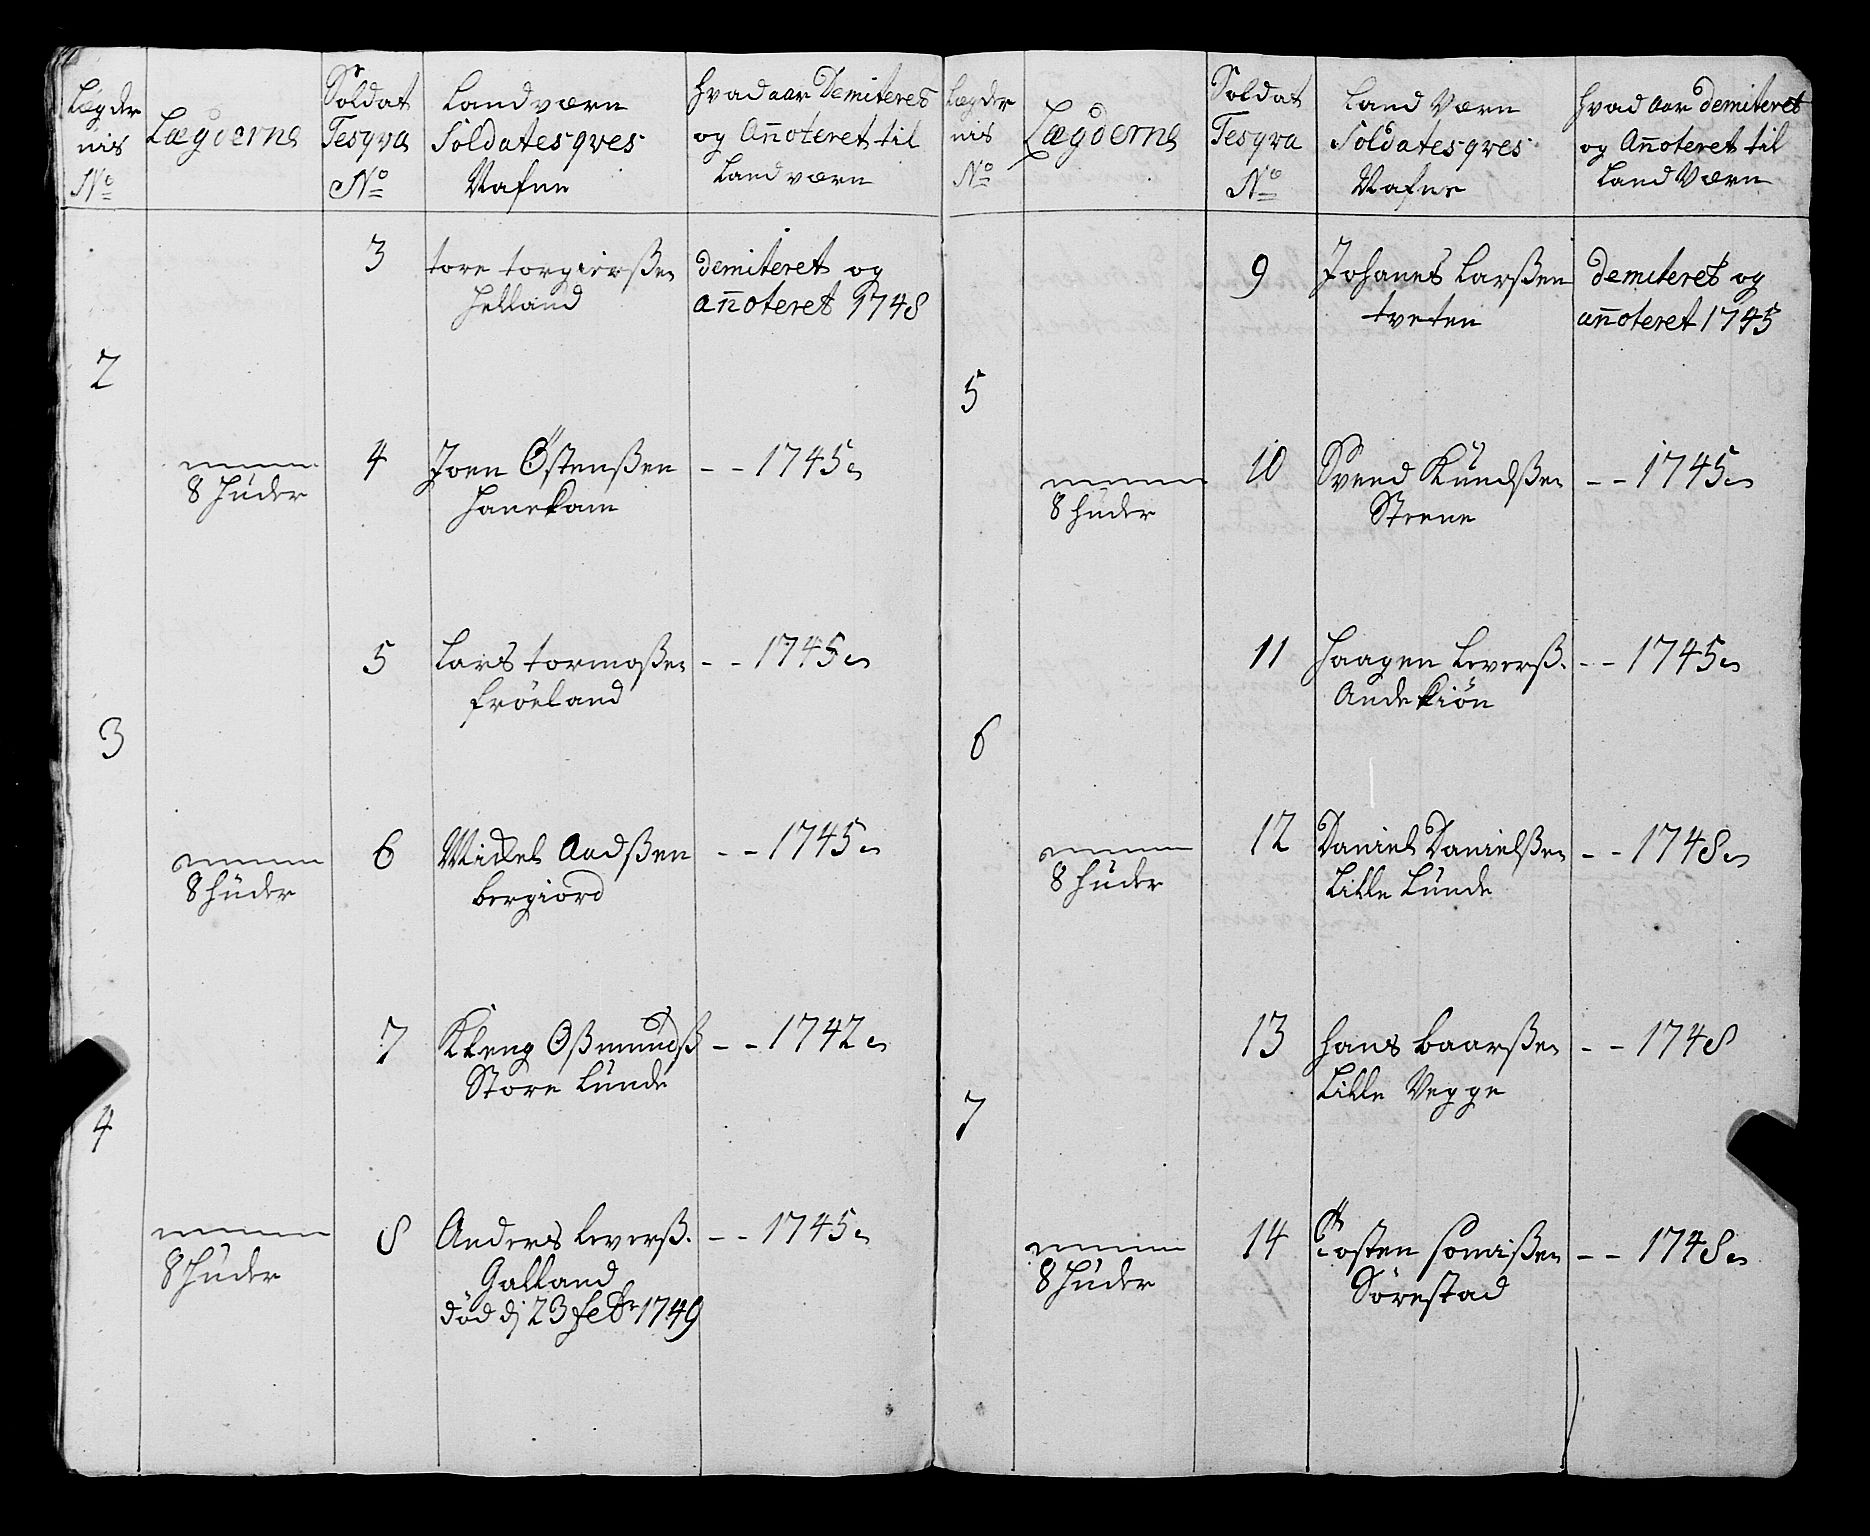 Lægder
nis
No
Lægderne
Soldat
Tesqva
No
Landværn
Soldatesqves
Nafne
Hvad aar Demiteret
og Añoteret til
Landværn
3
tore torgierßen
Helland
demiteret og
añoteret 1748
2
8 Hüder
4
Joen Östenßen
Hanekam
- - 1745
5
Lars tormoßen
fröeland
- - 1745
3
8 Hüder
6
Mickel Aadßen
bergiord
- - 1745
7
Kleng Oßmundß
Store Lunde
- - 1742
4
8 Hüder
8
Anders Leverß.
Galland
död dj 23 febr 1749
- - 1745
Lægder
nis
No
Lægderne
Soldat
Tesqva
No
Land Værn
Soldatesqves
Nafne
Hvad aar demiteret
og Añoteret til
Land Værn
9
Johanes Larßen
tveten
demiteret og
añoteret 1745
5
8 Hüder
10
Svend Knudßen
Steene
- - 1745
11
Haagen Leverß.
- - 1745
6
8 Hüder
12
Daniel Danielßen
Lille Lunde
- - 1748
13
Hans baarßen
Lille Vegge
- - 1748
7
8 Hüder
14
Tosten
Sörestad
- - 1748